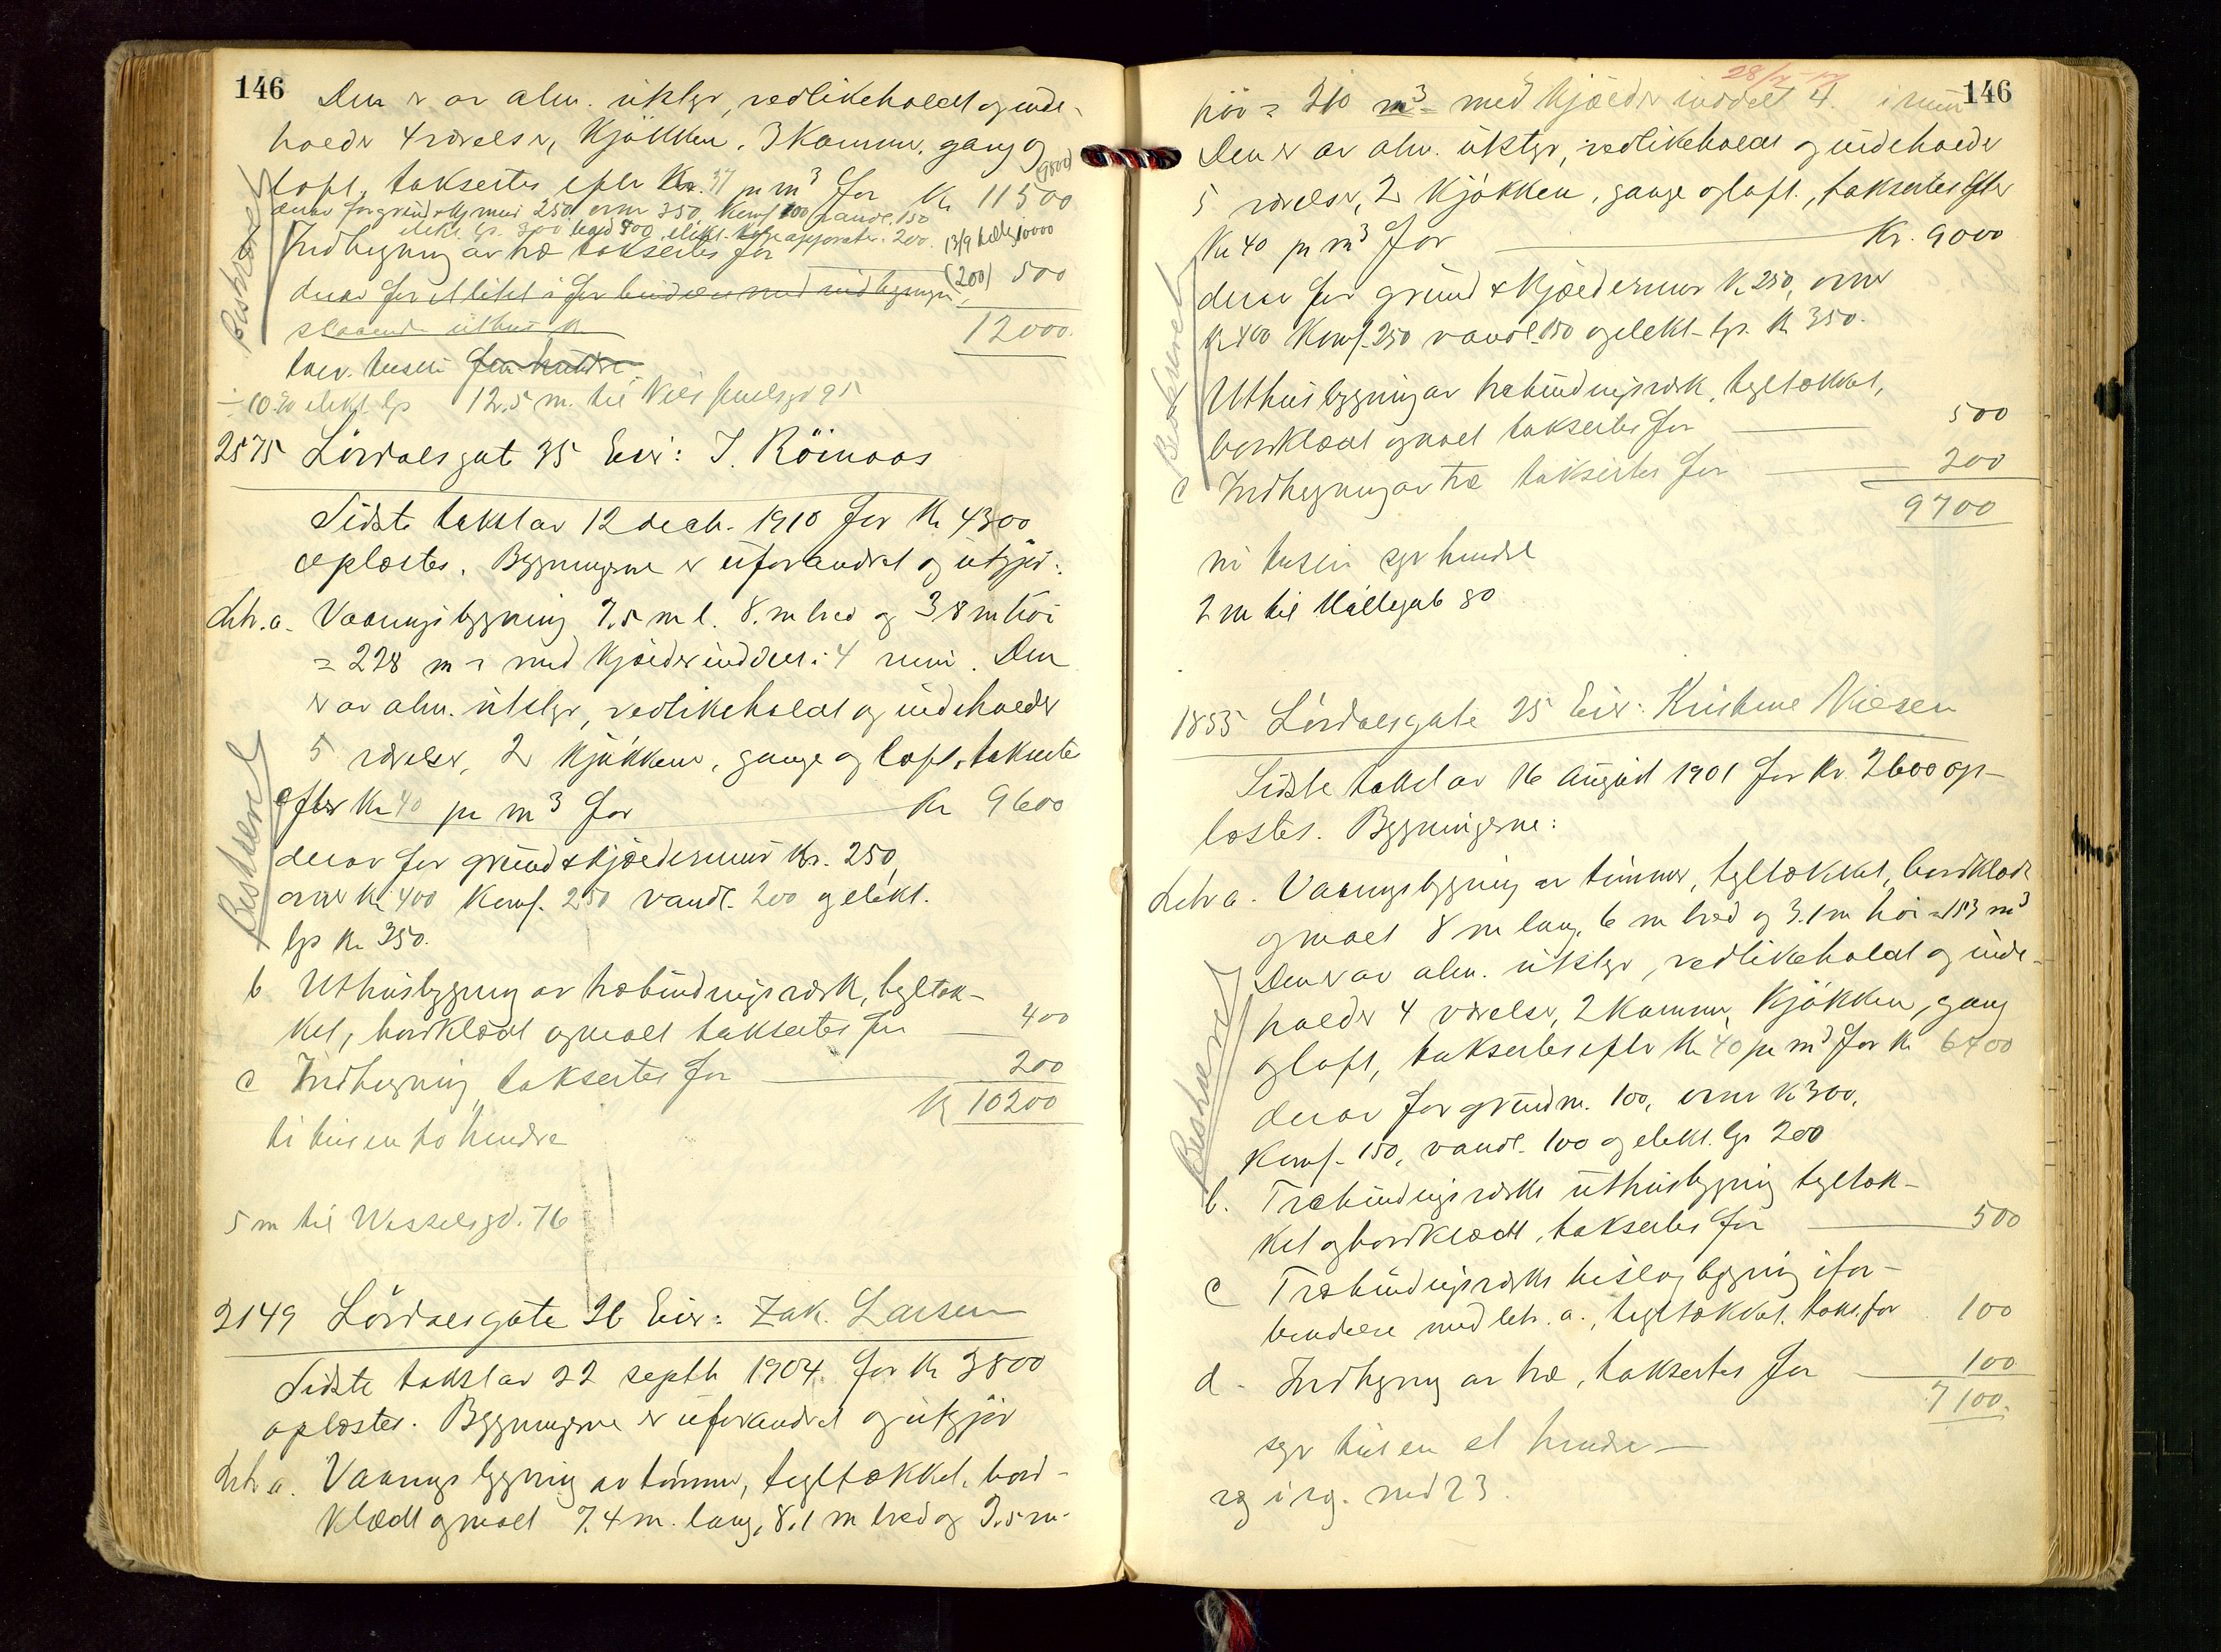 146
Den er av alm. utstyr, vedlikeholdt og inde-
holder 4 værelser, kjökken, 3 kammer, gang og
loft, taksertes efter Kr. 37 pr m³ for Kr 11500
(9800)
derav for grund & kj mur 250, ovner 350, komf 100 vandl. 150
elekt. lys 300 bad 800, elekt. apparater. 200.
Indhegning av træ taksertes for (200) 500
13/9 10000
derav for et litet i forbindelse med indhegningen
staaende uthus Kr
12000
tolv tusen fem hundre
÷ 10.20 elekt. lys 12.5 m. til Niels Juelsgd 95
Beskrevet
2575 Lövdalsgat 35 Eier: J. Röinaas
Sidste takst av 12 decb. 1910 for Kr 4300
oplæstes. Bygningerne er uforandret og utgjör:
Litr. a. Vaaningsbygning 7.5 m l. 8. m bred og 3 8 m höi
= 228 m³ med kjælder inddelt i 4 rum. Den
er av alm. utstyr, vedlikeholdt og indeholder
5 værelser, 2 kjökken, gange og loft, taksertes
efter Kr 40 pr m³ for Kr 9600
derav for grund & kjældermur Kr. 250,
ovner Kr 400 Komf. 250 vandl. 200 og elekt.
lys Kr 350.
Beskrevet
b Uthusbygning av træbindingsverk, tegltæk-
ket, bordklædt og malt taksertes for 400
c Indhegning taksertes for 200
Kr 10200
ti tusen to hundre
5 m til Wesselsgd. 76
2149 Lövdalsgate 26 Eier: Zak. Larsen
Sidste takst av 22 septb 1904 for Kr 3800
oplæstes. Bygningerne er uforandret og utgjör
Litr a. Vaaningsbygning av tömmer, tegltækket, bord-
klædt og malt 7.4 m. lang, 8.1 m bred og 3.5 m
146
28/
höi = 210 m³ = med kjælder inddelt i rum
Den er av alm. utstyr, vedlikeholdt og indeholder
5 værelser, 2 kjökken, gange og loft, taksertes efter
Kr 40 pr m³ for Kr. 9000
derav for grund & kjældermur Kr 250, ovner
Kr 400 Komf. 250 vandl. 150 og elekt. lys. Kr 350.
Beskrevet
Uthusbygning av træbindingsverk, tegltækket,
bordklædt og malt taksertes for 500
c Indhegning av træ taksertes for 200
9700
ni tusen syv hundre
2 m til Möllegat 80
1855 Lövdalsgate 25 Eier: Kristine Nielsen
Sidste takst av 16 august 1901 for Kr. 2600 op-
læstes. Bygningerne:
Litr a. Vaaningsbygning av tömmer, tegltækket, bordklædt
og malt 8 m lang, 6 m bred og 3.1 m höi = 153 m³
Den er av alm. utstyr, vedlikeholdt og inde-
holder 4 værelser, 2 kammer, kjökken, gang
og loft, taksertes efter Kr 40 pr m³ for Kr 6400
derav for grundm. 100, ovner Kr 300,
Komf. 150, vandl. 100 og elekt. lys 200
Beskrevet
b. Træbindingsverks uthusbygning tegltæk-
ket og bordklædt, taksertes for 500
c Træbindingsverks bislagbygning i for-
bindelse med litr. a., tegltækket, takst. for 100
d. Indhegning av træ, taksertes for 100
7100.
syv tusen et hundre
væg i væg. med 23.